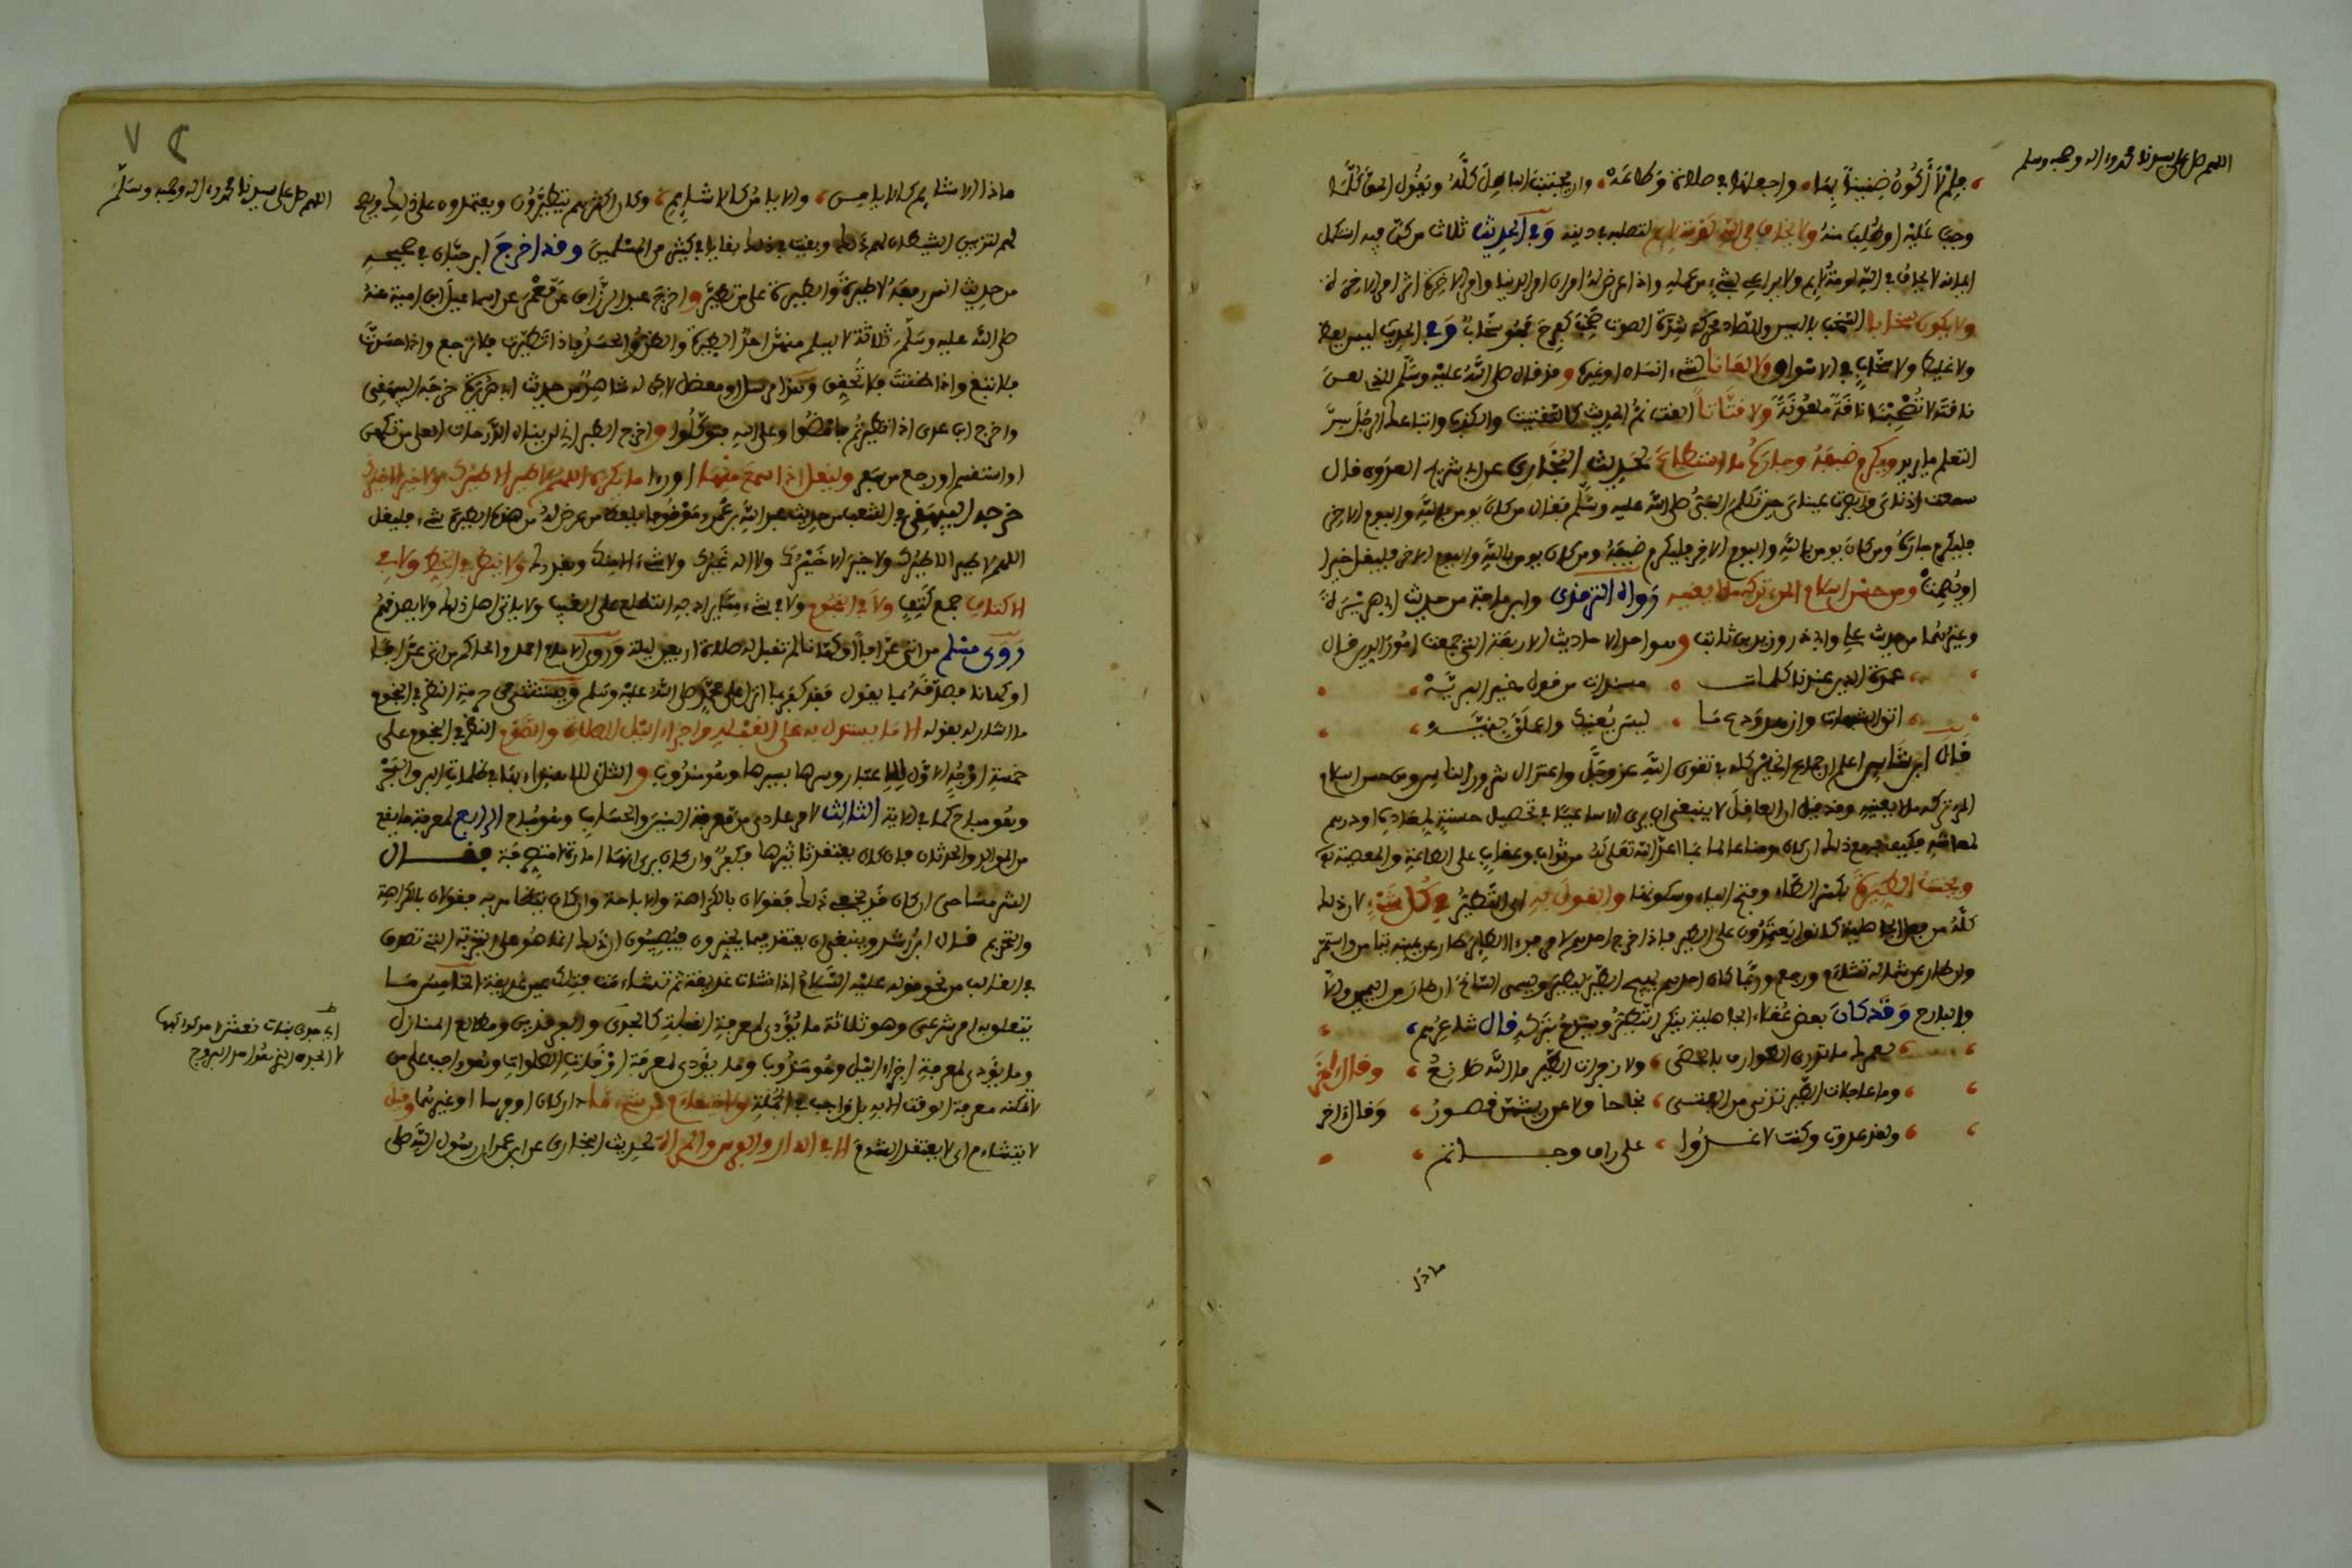 اللهم صل على سيدنا محمد واله وصحبه وسلم
فلم لا أكون ضنينا بها واجعلها في صلاة وطاعة وان يجتنب الباطل كله ويقول الحق كلما
وجب عليه او طلب منه ولا يخاف في الله لومة لائم لتصلبه في دينه وفي الحديث ثلاث من كن فيه استكمل
ايمانه لا يخاف في الله لومة لائم ولا يراءي بشيء من عمله واذا عرض له امران امر الدنيا وامر الاخرة اثر امر الاخرة
ولا يكون سخابا السخب بالسين والصاد محركة شدة الصوت صخب كفرح فهو سخاب وفي الحديث ليس بفظ
ولا غليظ ولا سخاب في الاسواق ولا لعانا لشيء انسان او غيره وقد قال صلى الله عليه وسلم للذي لعن
ناقته لا تصحبنا ناقة ملعونة ولا فتانا الفت نم الحديث كالتفتيت والكذب واتباعك الرجل سرا
لتعلم ما يريد ويكرم ضيفه وجاره ما استطاع لحديث البخاري عن ابي شريح العدوي قال
سمعت اذناي وابصرت عيناي حين تكلم النبي صلى الله عليه وسلم فقال من كان يومن بالله واليوم الاخر
فليكرم جاره ومن كان يومن بالله واليوم الاخر فليكرم ضيفه ومن كان يومن بالله واليوم الاخر فليقل خيرا
او ليصمت ومن حسن اسلام المرء تركه ما لا يعنيه رواه الترمذي وابن ماجة من حديث ابي هريرة
وغيرهما من حديث علي وابي ذر وزيد بن ثابت وهو احد الاحاديث الاربعة التي جمعت امور الدين قال
عمدة الدين عندنا كلمات مسندات من قول خير البريه
اتق الشبهات وازهد ودع ما ليس يعنيك واعملن بنيه
قال ابن شاس اعلم ان جماع الخير كله في تقوى الله عز وجل واعتزال شرور الناس ومن حسن اسلام
المرء تركه ما لا يعنيه وقد قيل ان العاقل لا ينبغي ان يرى الا ساعيا في تحصيل حسنة لمعاده او درهم
لمعاشه فكيف به مع ذلك ان كان مومنا عالما بما اعد الله تعلى من ثواب وعقاب على الطاعة والمعصية
ويجتنب الطيرة بكسر الطاء وفتح الياء وسكونها والقول به اي التطير في كل شيء لان ذلك
كله من فعل الجاهلية كانوا يعتمدون على الطير فاذا خرج احدهم لامر فرءا الطير طار عن يمينه تيامن واستمر
وان طار عن شماله تشاءم ورجع وربما كان احدهم يهيج الطير ليطير ويسمى السانح ان طار من اليمين والا
والبارح وقد كان بعض عقلاء الجاهلية ينكر التطير ويتمدح بتركه قال شاعرهم
لعمرك ما تدري الطوارق بالحصى ولا زاجرات الطير ما الله صانع وقال اخر
وما عاجلات الطير تدني من الفتى نجاحا ولا عن ريثهن قصور وقال اخر
ولقد غدوت وكنت لا اغدوا على واق وحاتم
ماذا
٧٢
اللهم صل على سيدنا محمد واله وصحبه وسلم
فاذا الاشائم كالايامن والايامن كالاشائم وكان اكثرهم يتطيرون ويعتمدون على ذلك ويصح
لهم لتزيين الشيطان لهم ذلك وبقيت في ذلك بقايا في كثير من المسلمين وقد اخرج ابن حبان في صحيحه
من حديث انس رفعه لا طيرة والطيرة على من تطير واخرج عبد الرزاق عن معمر عن اسماعيل ابن امية عنه
صلى الله عليه وسلم ثلاثة لا يسلم منهن احد الطيرة والظن والحسد فاذا تطيرت فلا ترجع واذا حسدت
فلا تبغ واذا ظننت فلا تحقق وهذا مرسل او معضل لاكن له شاهد من حديث ابي هريرة خرجه البيهقي
واخرج ابن عدي اذا تطيرتم فامضوا وعلى الله فتوكلوا واخرج الطبراني لن ينال الدرجات العلى من تكهن
او استقسم او رجع من سفر وليقل اذا سمع منها او رءا ما يكره اللهم لا طير الا طيرك ولا خير الا خيرك
خرجه البيهقي في الشعب من حديث عبد الله بن عمرو موقوفا بلفظ من عرض له من هذه الطيرة شيء فليقل
اللهم لا طير الا طيرك ولا خير الا خيرك ولا اله غيرك ولا شيء الا بك ونحو ذلك ولا ينظر في الخط ولا في
الاكتاف جمع كتف ولا في النجوم ولا في شيء مما يراد به التطلع على الغيب ولا ياتي اهل ذلك ولا يصدقهم
روى مسلم من اتى عرافا او كاهنا لم تقبل له صلاة اربعين ليلة وروى الامام احمد والحاكم من اتى عرافا
او كاهنا فصدقه بما يقول فقد كفر بما انزل على محمد صلى الله عليه وسلم ويستثنى من حرمة النظر في النجوم
ما اشار له بقوله الا ما يستدل به على القبلة واجزاء الليل للصلاة والصوم النظر في النجوم على
خمسة اوجه الاول للاعتبار وسرها بسيرها وهو مندوب والثاني للاهتداء بها في ظلمات البر والبحر
وهو مباح كما في الاية الثالث لامر عادي من معرفة السنين والحساب وهو مباح الرابع لمعرفة ما يقع
من الموالد والحدثان فان كان يعتقد تاثيرها فكفر وان كان يرى انها امارة فقال
القرمسا حي ان كان في ذلك فقولان بالكراهة والاباحة وان كان فقولان بالكراهة
والتحريم قال ابن رشد وينبغي ان يعتقد فيما يخبرون فيصيبون ان ذلك انما هو على التجربة التي تصدق
في الغالب من نحو قوله عليه السلام اذا نشات بحرية ثم تشاءمت فتلك عين غديقة الخامس ما
يتعلق به امر شرعي وهو ثلاثة ما يؤدي لمعرفة القبلة كالجدي والفرقدين ومطالع المنازل
وما يؤدي لمعرفة اجزاء الليل وهو مندوب وما يؤدي لمعرفة اوقات الصلوات وهو واجب على من
لا تمكنه معرفة الوقت الا به بل واجب في الجملة ولا يتشاءم من شيء ما دار كان او فرسا او غيرهما وقيل
لا يتشاءم اي لا يعتقد الشوم الا في الدار والفرس والمراة لحديث البخاري عن ابن عمر ان رسول الله صلى
اي جدي بنات نعش
لا الجدي الذي هو احد البروج